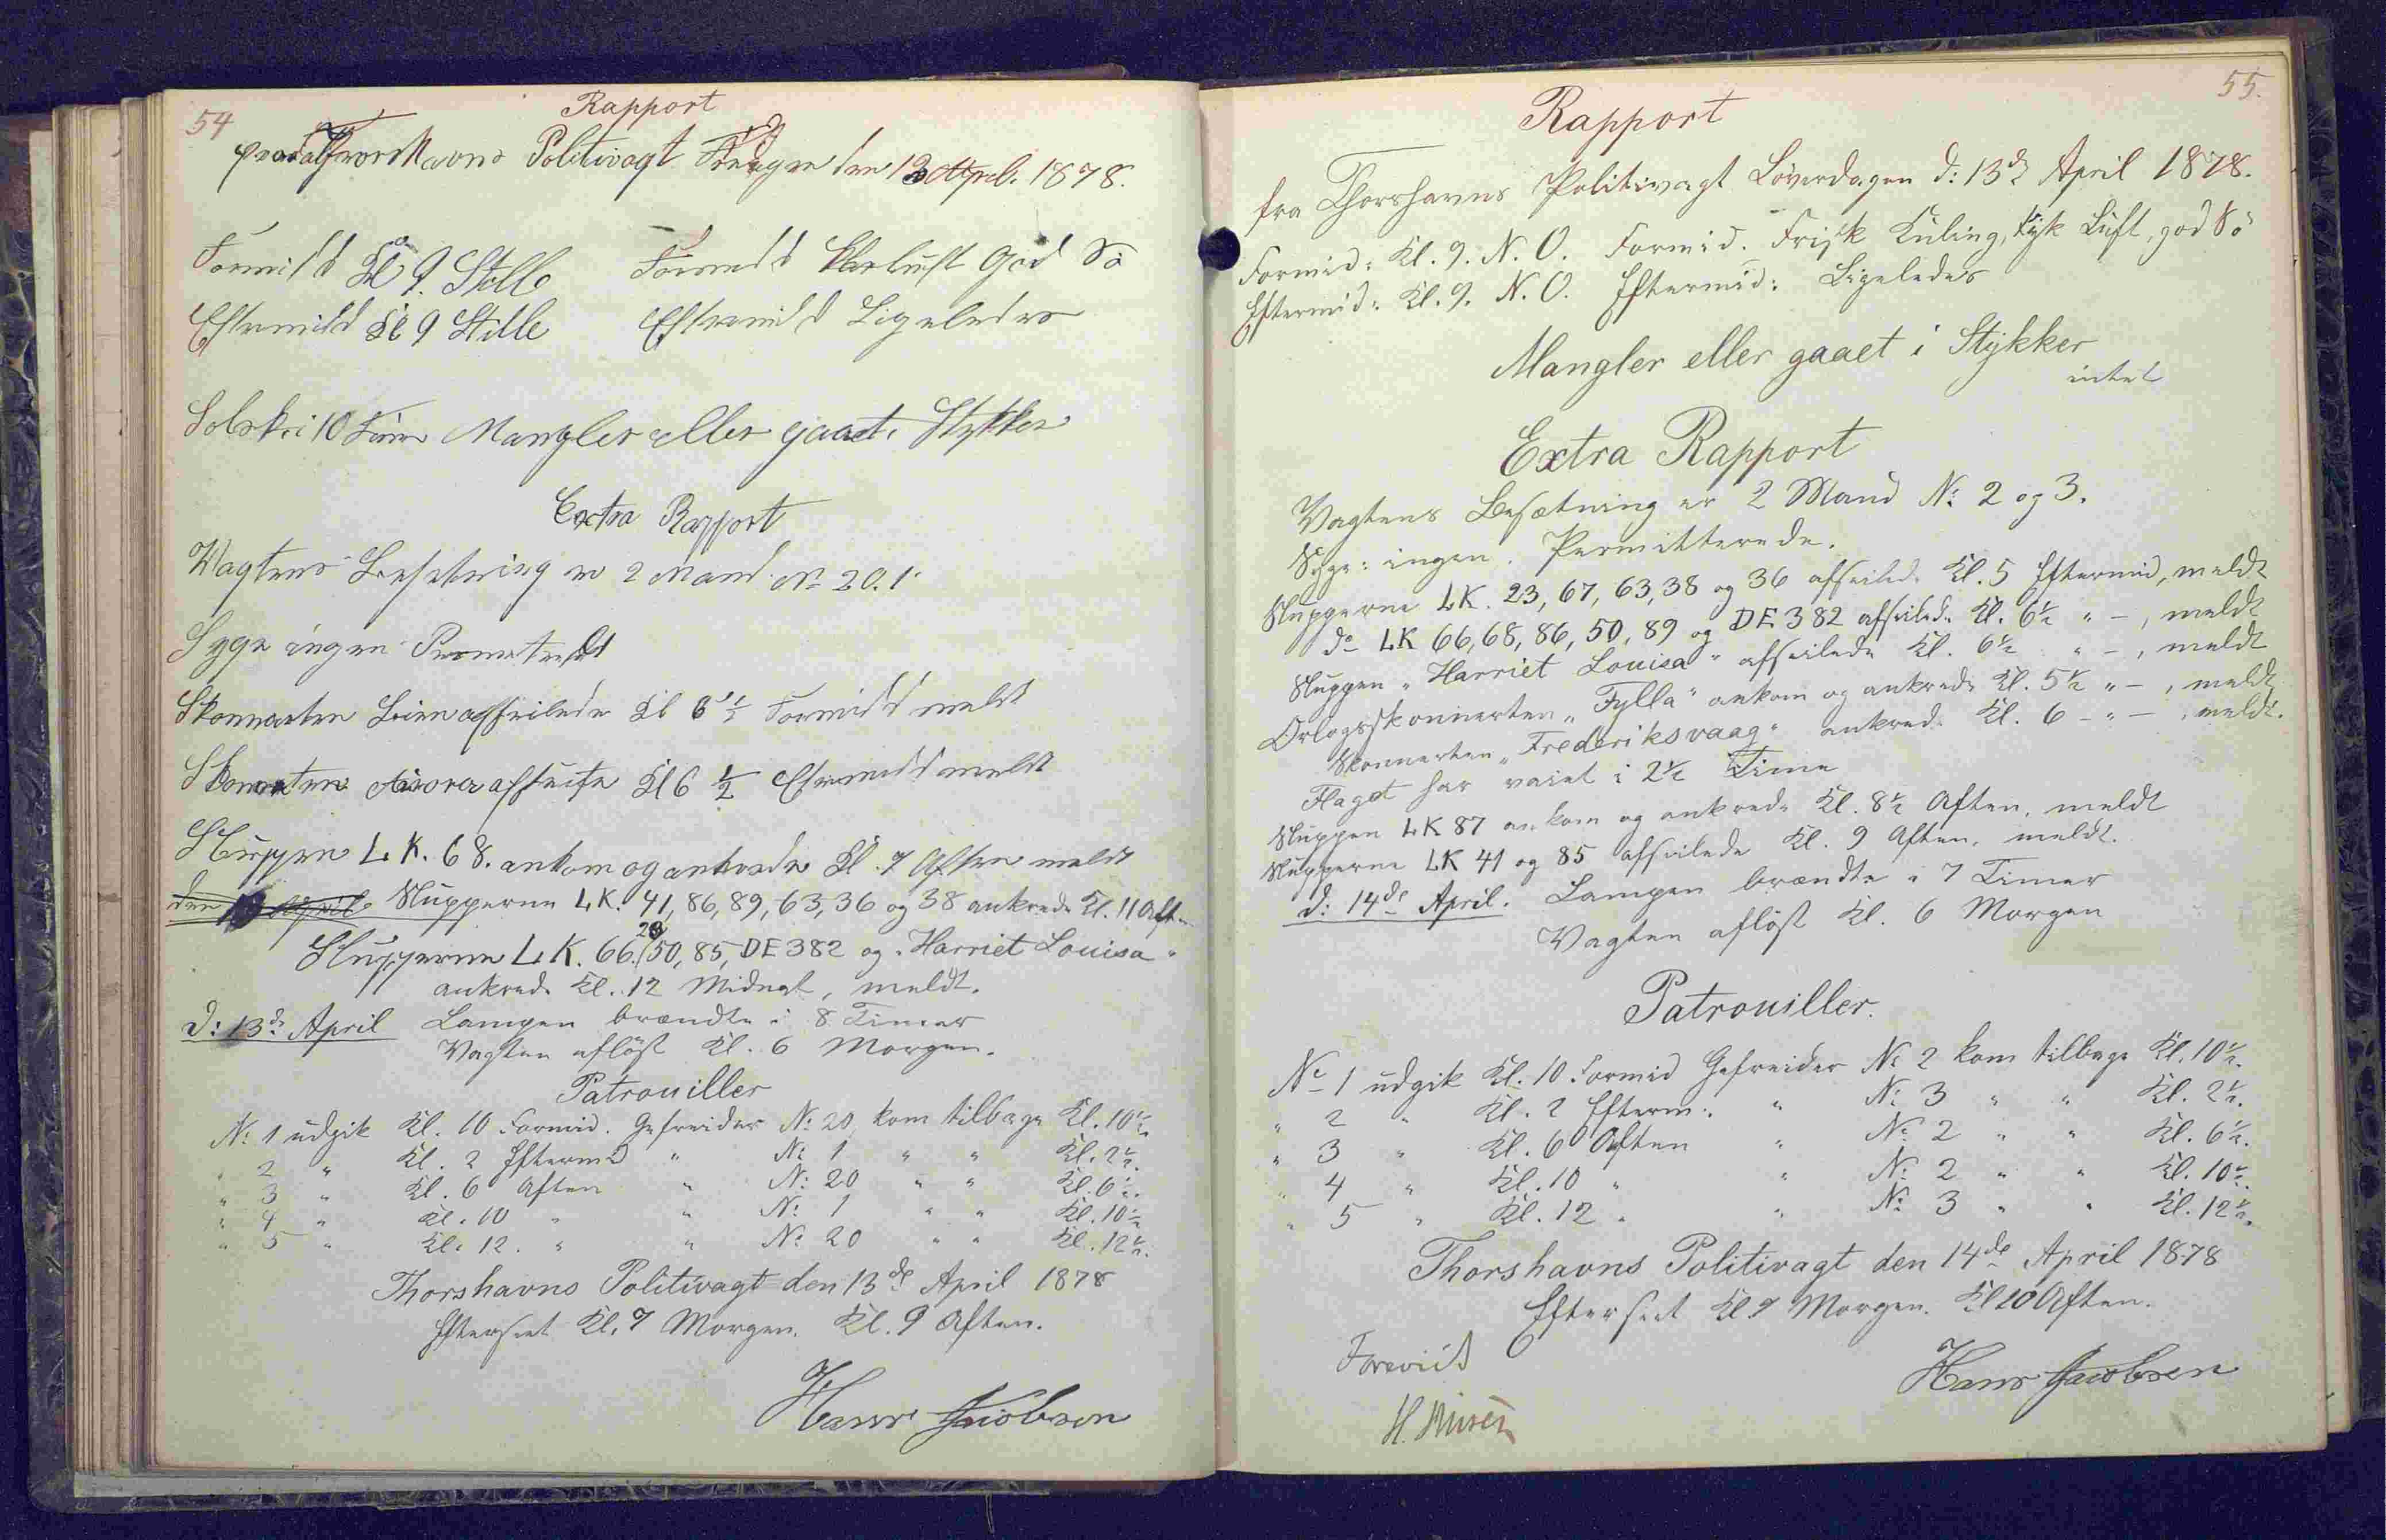 54
Rapport
Thorshavns Politivagt Fredagen den 12 April 1878.
Formidd Kl 9. Stille Formidd Klarluft God Sö
Eftermidd Kl 9 Stille Eftermidd Ligeledes
Mangler eller gaaet i Stykker
Extra Rapport
Vagtens Besetning er 2 Mand No 20. 1.
Syge ingen
Skonnerten afseilede Kl 6 1/2 Formidd meldt
Skonnerten Kl 6 1/2 Eftermidd meldt
Sluppen L. K. 68. ankom og ankrede Kl. 7 Aften meldt
Slupperne LK. 41, 86, 89, 63, 36 og 38 ankrede Kl. 11 Aften
23
Slupperne L. K. 66, 50, 85, DE 382 og "Harriet Louisa"
ankrede Kl. 12 Midnat, meldt.
d: 13de April Lampen brændte i 8 Timer
Vagten aflöst Kl. 6 Morgen.
Patrouiller
No 1 udgik Kl. 10 Formid. Gefreider No 20 kom tilbage Kl. 10 1/2
" 2 " Kl. 2 Eftermd " No 1 " " Kl. 2 1/2.
" 3 " Kl. 6 Aften " No 20 " " Kl. 6 1/2.
" 4 " Kl. 10 " " No 1 " " Kl. 10 1/2
" 5 " Kl. 12. " " No 20 " " Kl. 12 1/2.
Thorshavns Politivagt den 13de April 1878
Efterseet Kl. 7 Morgen. Kl. 9 Aften.
Hans Jacobsen
55.
Rapport
fra Thorshavns Politivagt Löverdagen d: 13de April 1878.
Formid: Kl. 9. N. O. Formid. Frisk Kuling, tyk Luft, god Sö
Eftermid: Kl. 9. N. O. Eftermid: Ligeledes
Mangler eller gaaet i Stykker
intet
Extra Rapport
Vagtens Besætning er 2 Mand No 2 og 3.
Syge: ingen. Permitterede.
Slupperne LK. 23, 67, 63, 38 og 36 afseilede Kl. 5 Eftermid, meldt
do LK 66, 68, 86, 50, 89 og DE 382 afseilede Kl. 6 1/2 " - , meldt
Sluppen "Harriet Louisa" afseilede Kl. 6 1/2 " - , meldt
Orlogsskonnerten "Fylla" ankom og ankrede Kl. 5 1/2 " - , meldt
Skonnerten "Frederiksvaag" ankred. Kl. 6 - " - , meldt.
Flaget har vaiet i 2 1/2 Time
Sluppen LK 87 ankom og ankrede Kl. 8 1/2 Aften, meldt
Slupperne LK 41 og 85 afseilede Kl. 9 Aften, meldt.
d: 14de April. Lampen brændte i 7 Timer
Vagten aflöst Kl. 6 Morgen
Patrouiller.
No 1 udgik Kl. 10 Formid Gefreider No 2 kom tilbage Kl. 10 1/2.
" 2 " Kl. 2 Efterm: " No 3 " " Kl. 2 1/2.
" 3 " Kl. 6 Aften " No 2 " " Kl. 6 1/2.
" 4 " Kl. 10 " " No 2 " " Kl. 10 1/2.
" 5 " Kl. 12 " " No 3 " " Kl. 12 1/2.
Thorshavns Politivagt den 14de April 1878
Efterseet Kl 7 Morgen. Kl 10 Aften.
Foreviist
Hans Jacobsen